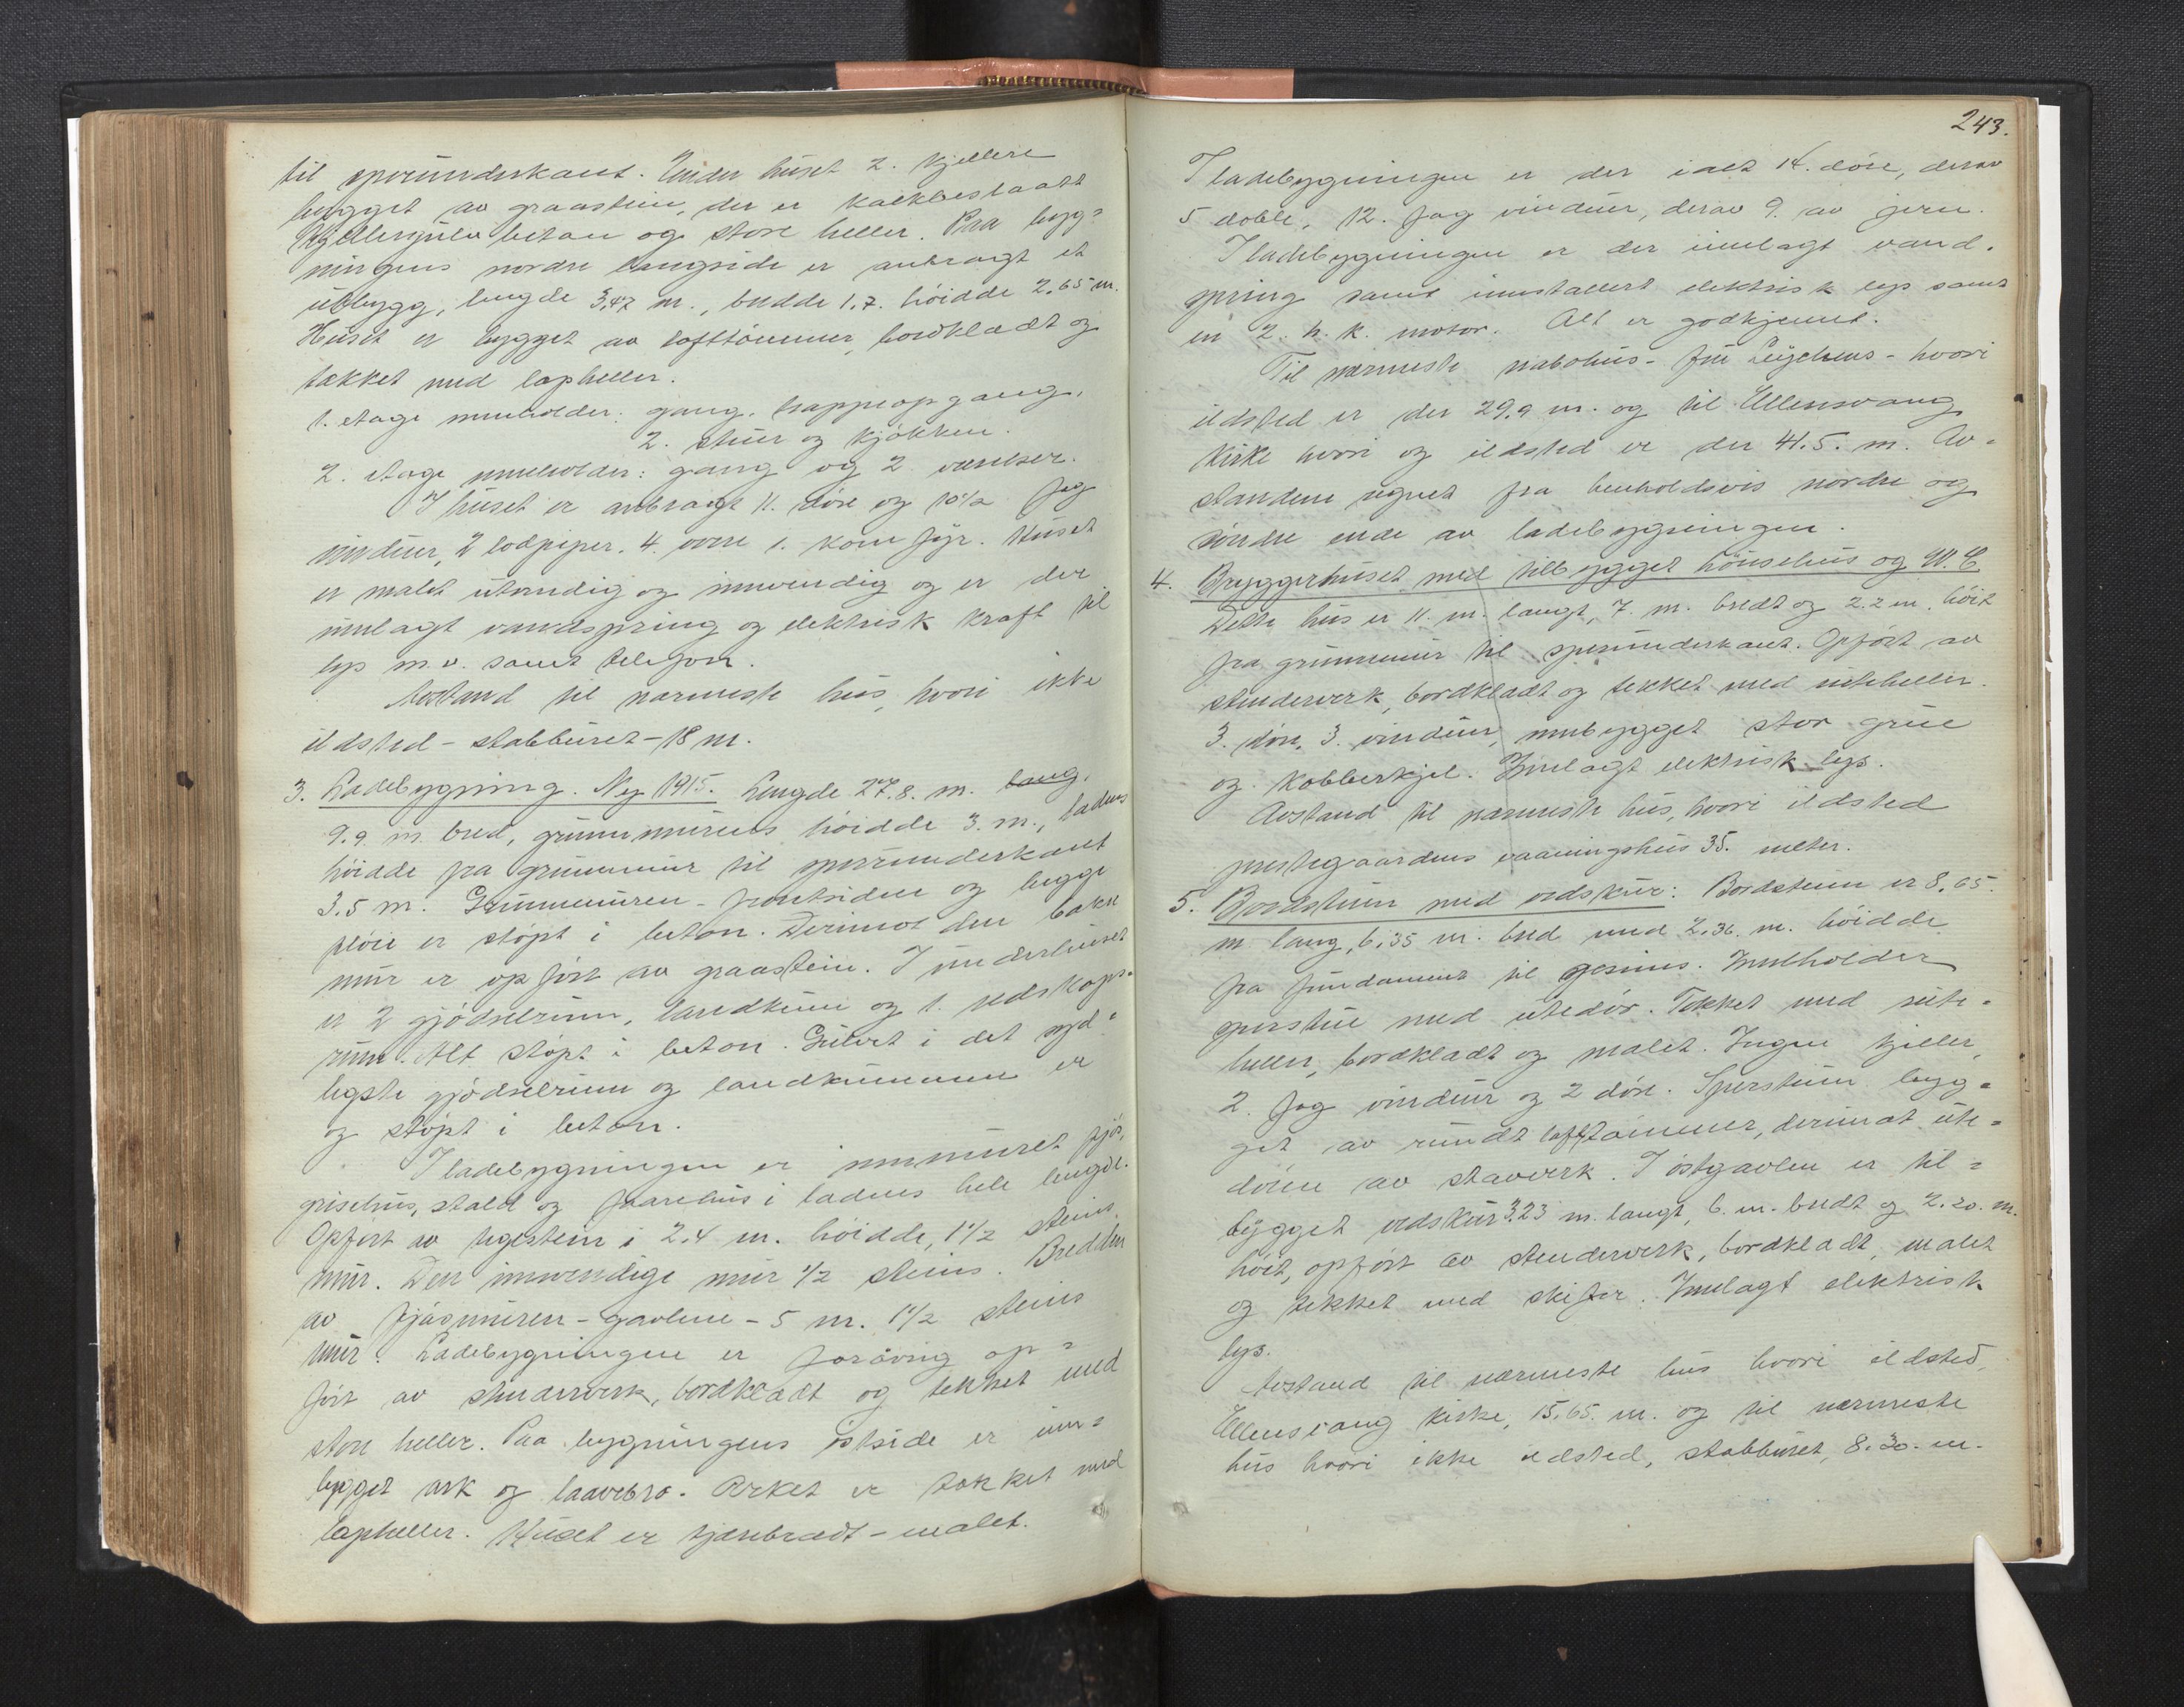 til sperrunderkant. Under huset 2. kjellere
bygget av graastein, der er kalkbeslaatt
Kjellergulv beton og store heller. Paa byg=
ningens nordre langside er anbragt et
utbygg, lengde 3,47 m., bredde 1.7. høidde 2.65 m.
Huset er bygget av lafttømmer, bordklædt og
tækket med lapheller.
1. etage inneholder: gang, trappeopgang,
2. stuer og kjøkken.
2. etage inneholder: gang og 2 værelser.
I huset er anbragt 11. døre og 10½ fag
vinduer, 2 lodpiper. 4. ovne 1. komfyr. Huset
er malet utvendig og innvendig og er der
innlagt vandspring og elektrisk kraft til
lys m.v. samt telefon.
Avstand til nærmeste hus, hvori ikke
ildsted - stabburet - 18 m.
3. Ladebygning. Ny 1915. Lengde 27.8. m. lang.
9.9 m. bred, grunnmurens høidde 3. m., ladens
høidde fra grunnmur til sperrunderkant
3.5 m. Grunnmuren - frontsiden og begge
fløie er støpt i beton. Derimot den bakre
mur er opført av graastein. I underhuset
er 2 gjødselrum, landkum og 1. redskaps=
rum. Alt støpt i beton. Gulvet i det syd=
ligste gjødselrum og landkummen er
og støpt i beton.
I ladebygningen er innmuret fjøs,
grisehus, stald og faarehus i ladens hele lengde.
Opført av teglstein i 2.4 m. høidde, 1½ steins
mur. Den innvendige mur ½ steins. Bredden
av fjøsmuren - gavlene - 5 m. 1½ steins
mur. Ladebygningen er forøvrig op=
ført av stenderverk, bordklædt og tekket med
store heller. Paa bygningens østside er inn=
bygget ark og laavebro. Arket er tækket med
lapheller. Huset er tjærebrædt - malet.
243.
I ladebygningen er der ialt 14. døre, derav
5 doble, 12. fag vinduer, derav 9. av jern.
I ladebygningen er der innlagt vand.
spring samt innstallert elektrisk lys samt
en 2. h. k. motor. Alt er godkjennt.
Til nærmeste nabohus - fru Lygdmens - hvori
ildsted er der 29.9 m. og til Ullensvang
Kirke hvori og ildsted er der 41.5. m. Av=
standene regnet fra henholdsvis nordre og
søndre ende av ladebygningen.
4. Bryggerhuset med tilbygget hønsehus og W. C.
Dette hus er 11. m. langt, 7. m. bredt og 2.2 m. høit
fra grunnmur til sperrunderkant. Opført av
stenderverk, bordklædt og tekket med ruteheller.
3. døre, 3. vinduer, innbygget stor grue
og kobberkjel. Innlagt elektrisk lys.
Avstand til nærmeste hus, hvori ildsted
prestegaardens vaaningshus 35. meter.
5. Bordstuen med vedskur: Bordstuen er 8.65.
m. lang, 6.35 m. bred med 2.36. m. høidde
fra fundament til gesims. Innholder
sperstue med utedør. Tekket med rute=
heller, bordklædt og malet. Ingen kjeller,
2. fag vinduer og 2 døre. Sperstuen byg=
get av rundt lafttømmer, derimot ute=
døren av staverk. I østgavlen er til=
bygget vedskur 3.23 m. langt, 6. m. bredt og 2.20. m.
høit, opført av stenderverk, bordklædt, malet
og tekket med skifer. Innlagt elektrisk
lys.
Avstand til nærmeste hus hvori ildsted,
Ullensvang kirke, 15.65. m. og til nærmeste
hus hvori ikke ildsted, stabburet, 8.30. m.